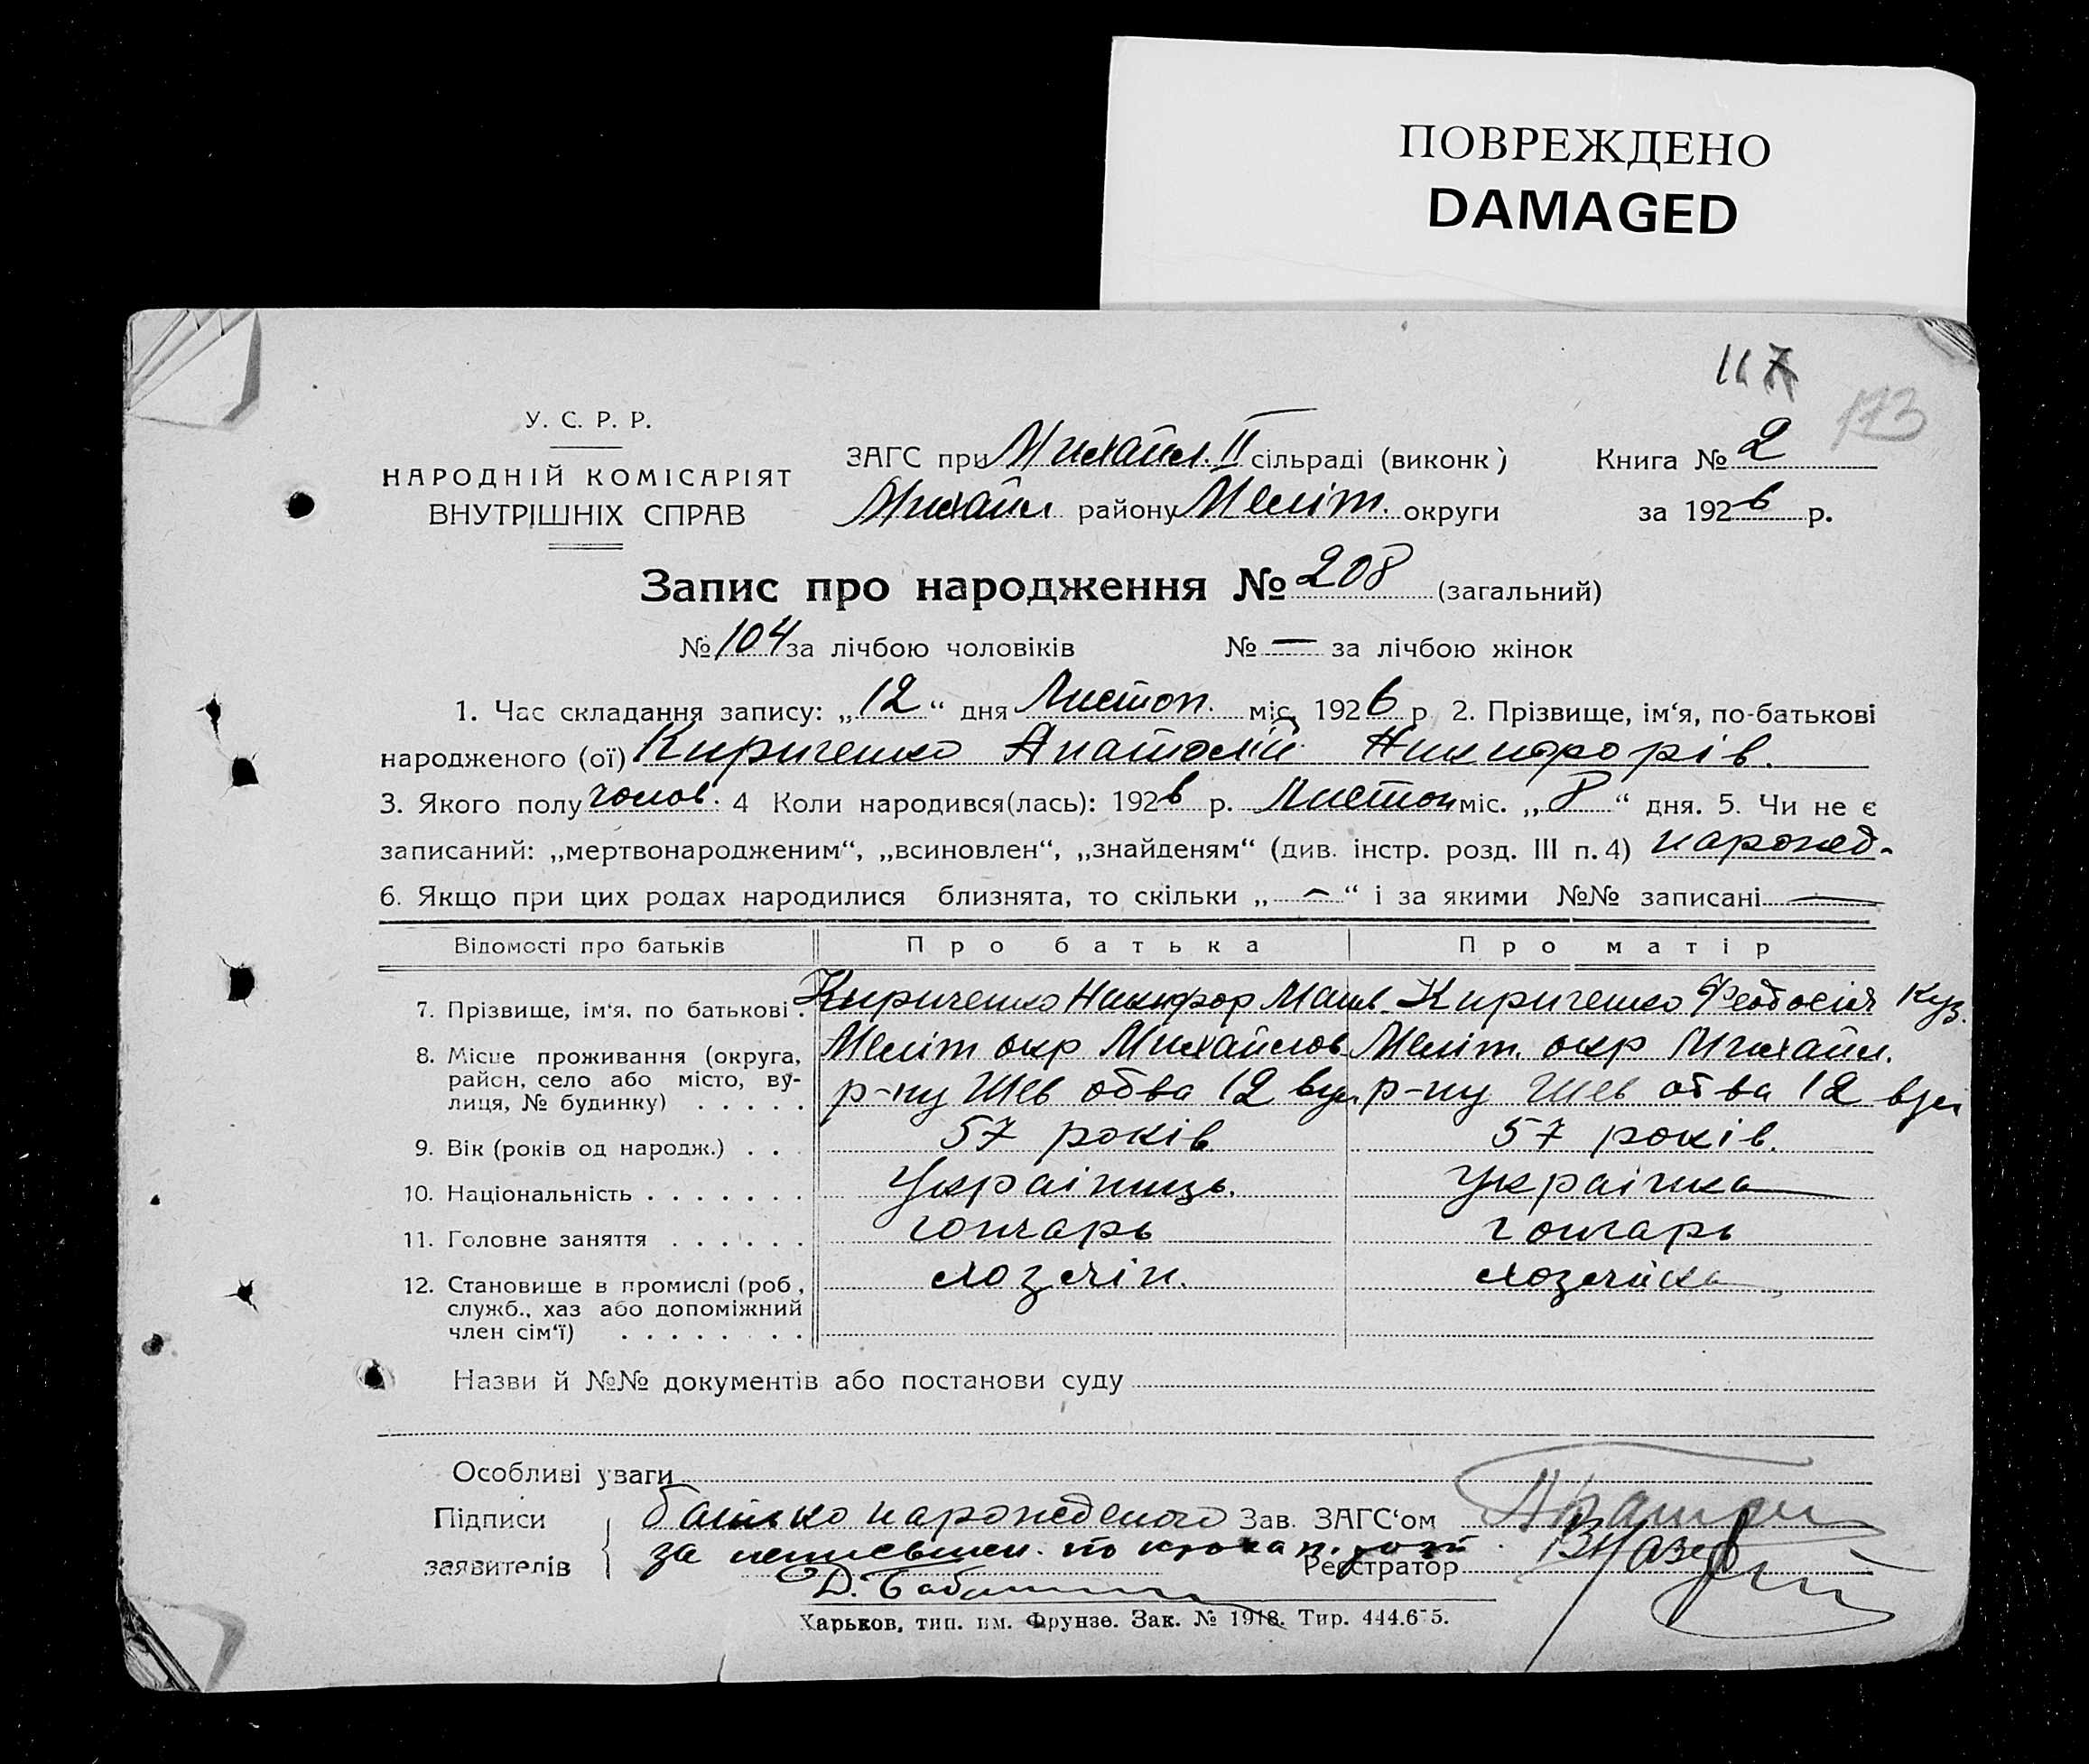 ПОВРЕЖДЕНО
DAMAGED
117
173
У. С. Р. Р.
НАРОДНІЙ КОМІСАРІЯТ
ВНУТРІШНІХ СПРАВ
ЗАГС при Михайл. II сільраді (виконк)
Книга № 2
Михайл району Меліт. округи
за 1926 р.
Запис про народження № 208 (загальний)
№ 104 за лічбою чоловіків № — за лічбою жінок
1. Час складання запису: „12“ дня Листоп. міс. 1926 р 2. Прізвище, ім‘я, по-батькові
народженого (ої) Кириченко Анатолій Никифорів.
3. Якого полу чолов. 4 Коли народився(лась): 1926 р. Листоп міс. „8“ дня. 5. Чи не є
записаний: „мертвонародженим“, „всиновлен“, „знайденям“ (див. інстр. розд. III п. 4) народ.
6. Якщо при цих родах народилися близнята, то скільки „—“ і за якими №№ записані —
Відомості про батьків Про батька Про матір
7. Прізвище, ім‘я. по батькові. Кириченко Никифор Матв. Кириченко Феодосія Куз.
8. Місце проживання (округа, район, село або місто, вулиця, № будинку) . . . . .
Меліт окр Михайлов Меліт. окр Михайл.
р-ну Шев об ва 12 вул. р-ну Шев об ва 12 вул
9. Вік (років од народж.) . . . 57 років 57 років.
10. Національність . . . . . . . Українць. Українка
11. Головне заняття . . . . . . гончарь гончарь
12. Становище в промислі (роб, служб., хаз або допоміжний член сім‘ї) . . . . . . .
хозяін. хозяйка
Назви й №№ документів або постанови суду
Особливі уваги
Підписи
заявителів
батько нарожденого Зав. ЗАГС‘ом
за
Реєстратор
Харьков, тип. им. Фрунзе. Зак. № 1918. Тир. 444.675.